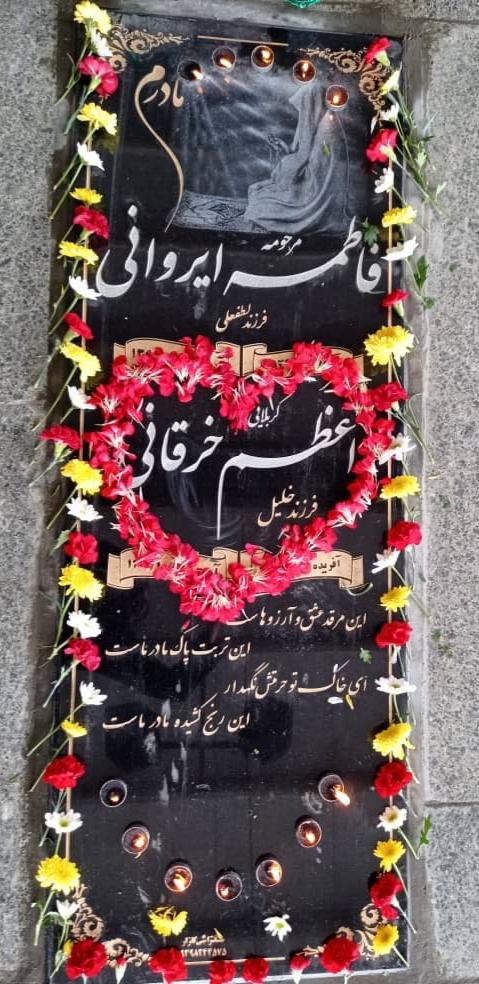 مادرم
مرحومه
فاطمه ایروانی
فرزند لطفعلی
کربلائی
اعظم خرقانی
فرزند خلیل
آفریده
این مرقد عشق و آرزوهاست
این تربت پاک مادر ماست
ای خاک تو حرمتش نگهدار
این رنج کشیده مادر ماست